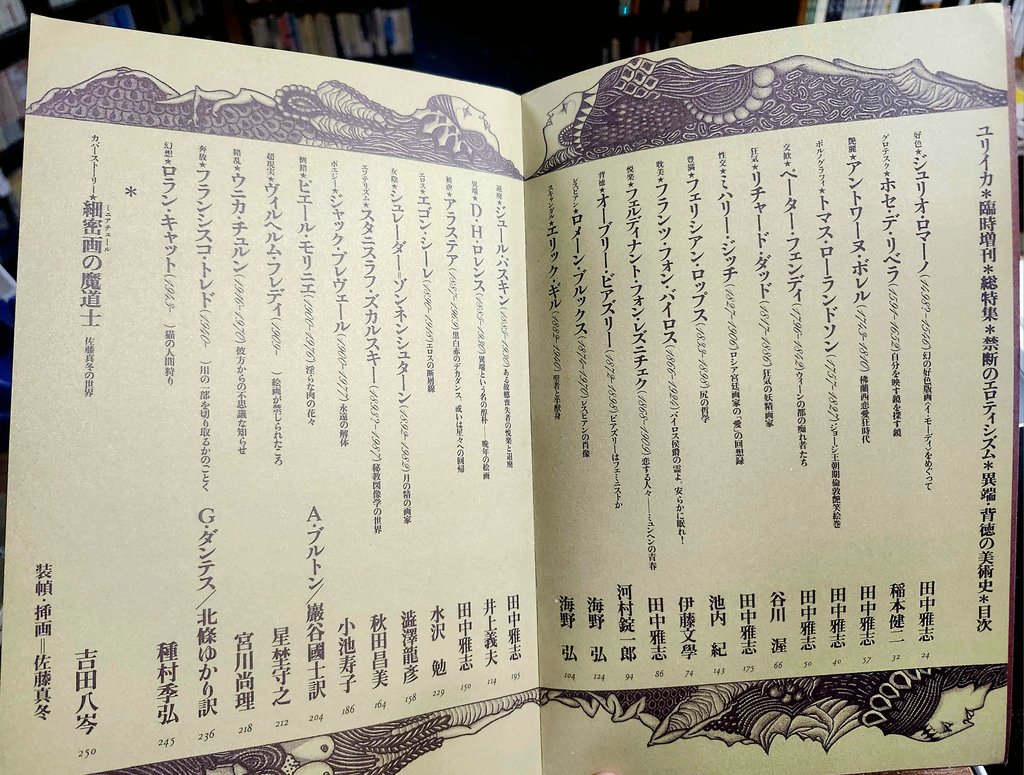 ユリイカ＊臨時増刊＊総特集＊禁断のエロティシズム＊異端・背徳の美術史＊目次
好色★ジュリオ・ロマーノ(1499?-1546)幻の好色版画〈イ・モーディ〉をめぐって 田中雅志 24
グロテスク★ホセ・デ・リベラ(1591-1652)自分を映す鏡を探す鏡 稲本健二 32
艶麗★アントワーヌ・ボレル 佛蘭西恋愛狂時代 田中雅志 57
ポルノグラフィ★トマス・ローランドソン(1757-1827)ジョージ王朝期倫敦艶笑絵巻 田中雅志 40
交歓★ペーター・フェンディ(1796-1842)ウィーンの都の痴れ者たち 田中雅志 50
狂気★リチャード・ダッド(1817-1886)狂気の妖精画家 谷川 渥 66
性交★ミハリー・ジッチ(1827-1906)ロシア宮廷画家の「愛」の回想録 田中雅志 175
豊満★フェリシアン・ロップス(1833-1898)尻の哲学 池内 紀 143
耽美★フランツ・フォン・バイロス(1866-1925)バイロス侯爵の霊よ、安らかに眠れ! 伊藤文學 74
悦楽★フェルディナント・フォン・レズニチェク(1868-1909)恋する人々――ミュンヘンの青春 田中雅志 86
背徳★オーブリー・ビアズリー(1872-1898)ビアズリーはフェミニストか 河村錠一郎 94
レスビアン★ロメーン・ブルックス(1874-1970)レスビアンの肖像 海野 弘 124
スキャンダル★エリック・ギル(1882-1940)聖者と半獣身 海野 弘 104
退廃★ジュール・パスキン(1885-1930)ある故郷喪失者の悦楽と退廃 田中雅志 195
異端★D・H・ロレンス(1885-1930)異端という名の醇朴――晩年の絵画 井上義夫 114
被虐★アラステア(1887-1969)黒白赤のデカダンス、或いは星々への回帰 田中雅志 150
エロス★エゴン・シーレ(1890-1918)エロスの断層線 水沢 勉 229
女陰★シュレーダー=ゾンネンシュターン(1892-1982)月の精の画家 澁澤龍彦 158
エソテリズム★スタニスラフ・ズカルスキー(1893?-1987)秘教図像学の世界 秋田昌美 164
ポエジー★ジャック・プレヴェール(1900-1977)永遠の解体 小池寿子 186
倒錯★ピエール・モリニエ(1900-1976)淫らな肉の花々 A・ブルトン／巖谷國士訳 204
超現実★ヴィルヘルム・フレディ(1909- )絵画が禁じられたころ 星埜守之 212
錯乱★ウニカ・チュルン(1916-1970)彼方からの不思議な知らせ 宮川尚理 218
奔放★フランシスコ・トレド(1940- )川の一部を切り取るかのごとく G・ダンテス／北條ゆかり訳 236
幻想★ロラン・キャット(1943- )猫の人間狩り 種村季弘 245
＊
カバーストーリー★細密画の魔道士 ミニアチュール 佐藤真冬の世界 吉田八岑 250
装幀・挿画―佐藤真冬